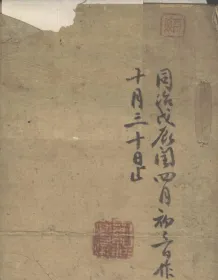 同治戊辰閏四月初一日作
十月三十日止